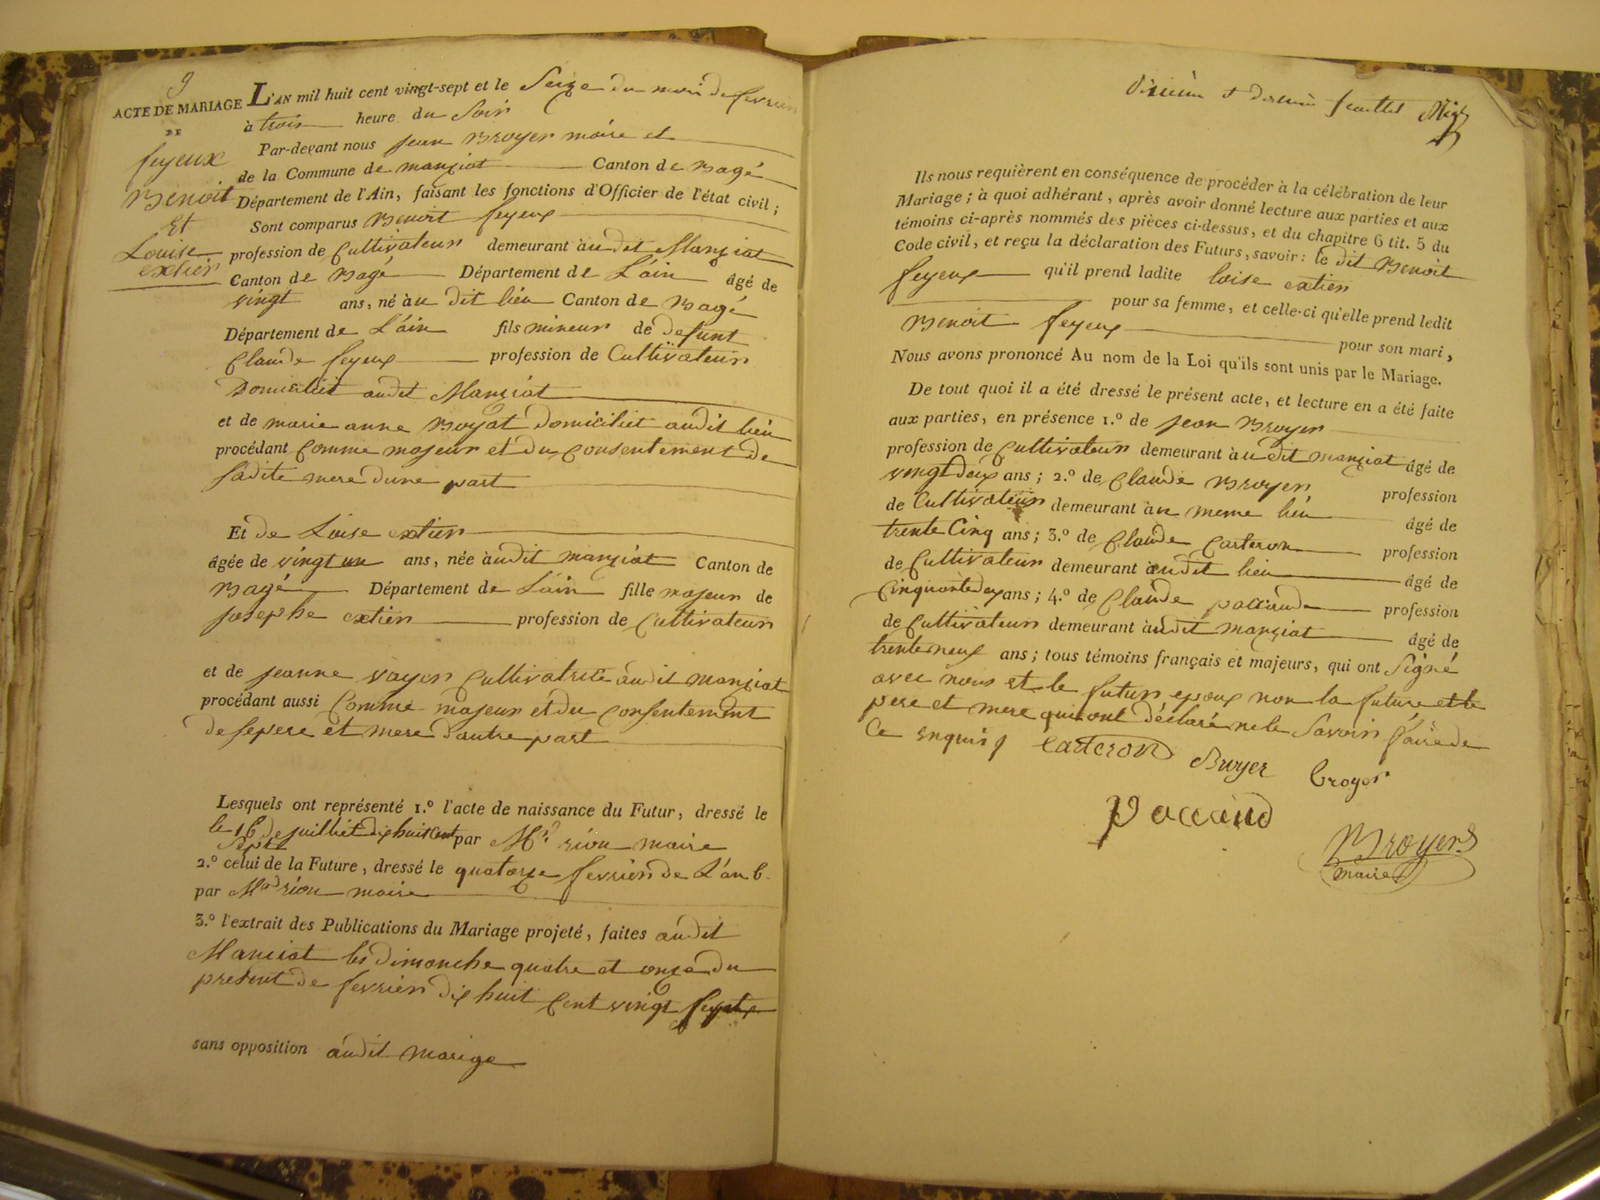 9
ACTE DE MARIAGE
DE
feyeux
Benoit
Et
Louise
extier
L'AN mil huit cent vingt-sept et le Seize du mois de fevrier
à trois heure du Soir
Par-devant nous jean Broyer maire et
de la Commune de manziat Canton de Bagé
Département de l'Ain, faisant les fonctions d'Officier de l'état civil ;
Sont comparus Benoit feyeux
profession de Cultivateur demeurant audit Manziat
Canton de Bagé Département de L'ain âgé de
vingt ans, né au dit lieu Canton de Bagé
Département de L'ain fils mineur de defunt
Claude feyeux profession de Cultivateur
Domiciliet audit Manziat
et de marie anne Boyat domiciliet audit lieu
procédant Comme majeur et du Consentement de
sadite mere dune part
Et de Loise extier
âgée de vingt un ans, née audit manziat Canton de
Bagé Département de L'ain fille majeur de
josephe extier profession de Cultivateur
et de jeanne vayer Cultivatrice audit manziat
procédant aussi Comme majeur et du Consentement
de sepere et mere dautre part
Lesquels ont représenté 1.º l'acte de naissance du Futur, dressé le
le 16 de juilliet dix huit Cent par Mr. rion maire
Sept
2.º celui de la Future, dressé le quatorze fevrier de L'an 6.
par Mr rion maire
3.º l'extrait des Publications du Mariage projeté, faites audit
Manziat les dimanche quatre et onze du
present de fevrier dix huit Cent vingt sept
sans opposition audit marige
dixieme et dernier feuillet
Ils nous requièrent en conséquence de procéder à la célébration de leur
Mariage ; à quoi adhérant, après avoir donné lecture aux parties et aux
témoins ci-après nommés des pièces ci-dessus, et du chapitre 6 tit. 5 du
Code civil, et reçu la déclaration des Futurs, savoir : le dit Benoit
feyeux qu'il prend ladite loise extier
pour sa femme, et celle-ci qu'elle prend ledit
Benoit feyeux pour son mari,
Nous avons prononcé Au nom de la Loi qu'ils sont unis par le Mariage.
De tout quoi il a été dressé le présent acte, et lecture en a été faite
aux parties, en présence 1.º de jean Broyer
profession de Cultivateur demeurant audit manziat âgé de
vingt deux ans ; 2.º de Claude Broyer profession
de Cultivateur demeurant au meme lieu âgé de
trente Cinq ans ; 3.º de Claude Carteron profession
de Cultivateur demeurant audit lieu âgé de
Cinquante deux ans ; 4.º de Claude paccaude profession
de Cultivateur demeurant audit manziat âgé de
trente neuf ans ; tous témoins français et majeurs, qui ont Signé
avec nous et le futur epoux non la future et le
pere et mere qui ont déclaré ne le Savoir faire de
Ce enquis Carteron Buyer broyer
paccaud
Broyer
maire